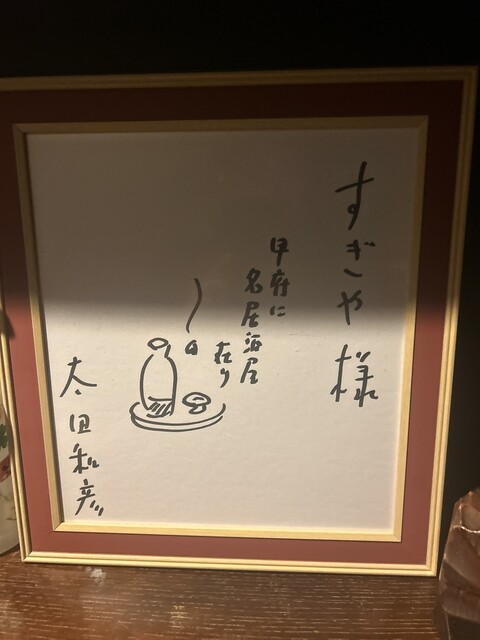 すぎや様
甲府に
名居酒屋
在り
太田和彦